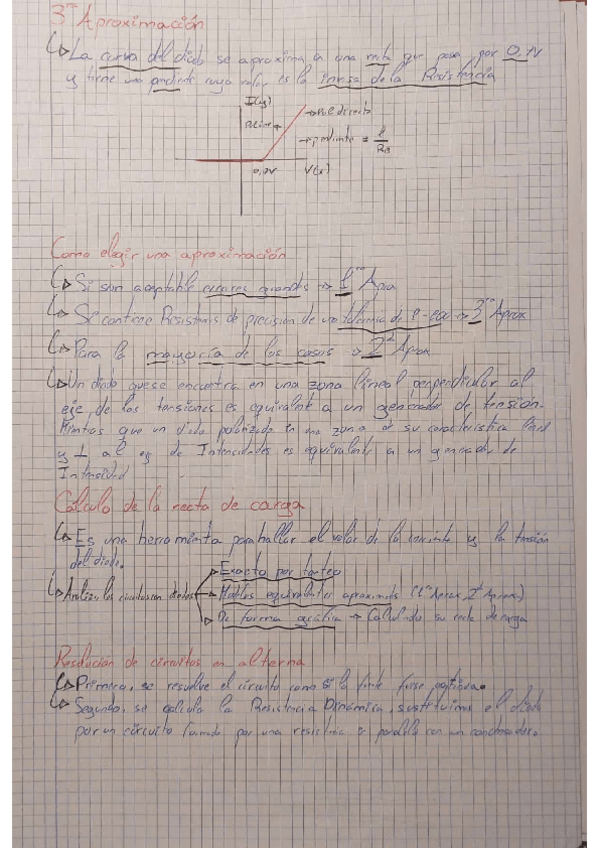 3ra Aproximación
La curva del diodo se aproxima a una recta que pasa por 0,7V
y tiene una pendiente cuyo valor es la inversa de la Resistencia
I(y)
Pol. directa
pendiente = 1/RB
0,7V V(x)
Como elegir una aproximación
Si son aceptable errores grandes → 1ra Apox
Se contiene Resistencias de precisión de una tolerancia de → 3ra Aprox
Para la mayoría de los casos → 2da Aprox
Un diodo que se encuentra en una zona lineal perpendicular al
eje de las tensiones es equivalente a un generador de tensión.
Mientras que un diodo polarizado en una zona de su característica lineal
y ⊥ al eje de Intensidades es equivalente a un generador de
Intensidad
Cálculo de la recta de carga
Es una herramienta para hallar el valor de la corriente y la tensión
del diodo.
Exacto por tanteo
Análisis los circuitos con diodos
Modelos equivalentes aproximados (1ra Aprox, 2da Aprox)
De forma gráfica → Calculando su recta de carga
Resolución de circuitos en alterna
Primero, se resuelve el circuito como si la fuente fuese continua.
Segundo, se calcula la Resistencia Dinámica, sustituimos el diodo
por un circuito formado por una resistencia en paralelo con un condensador.